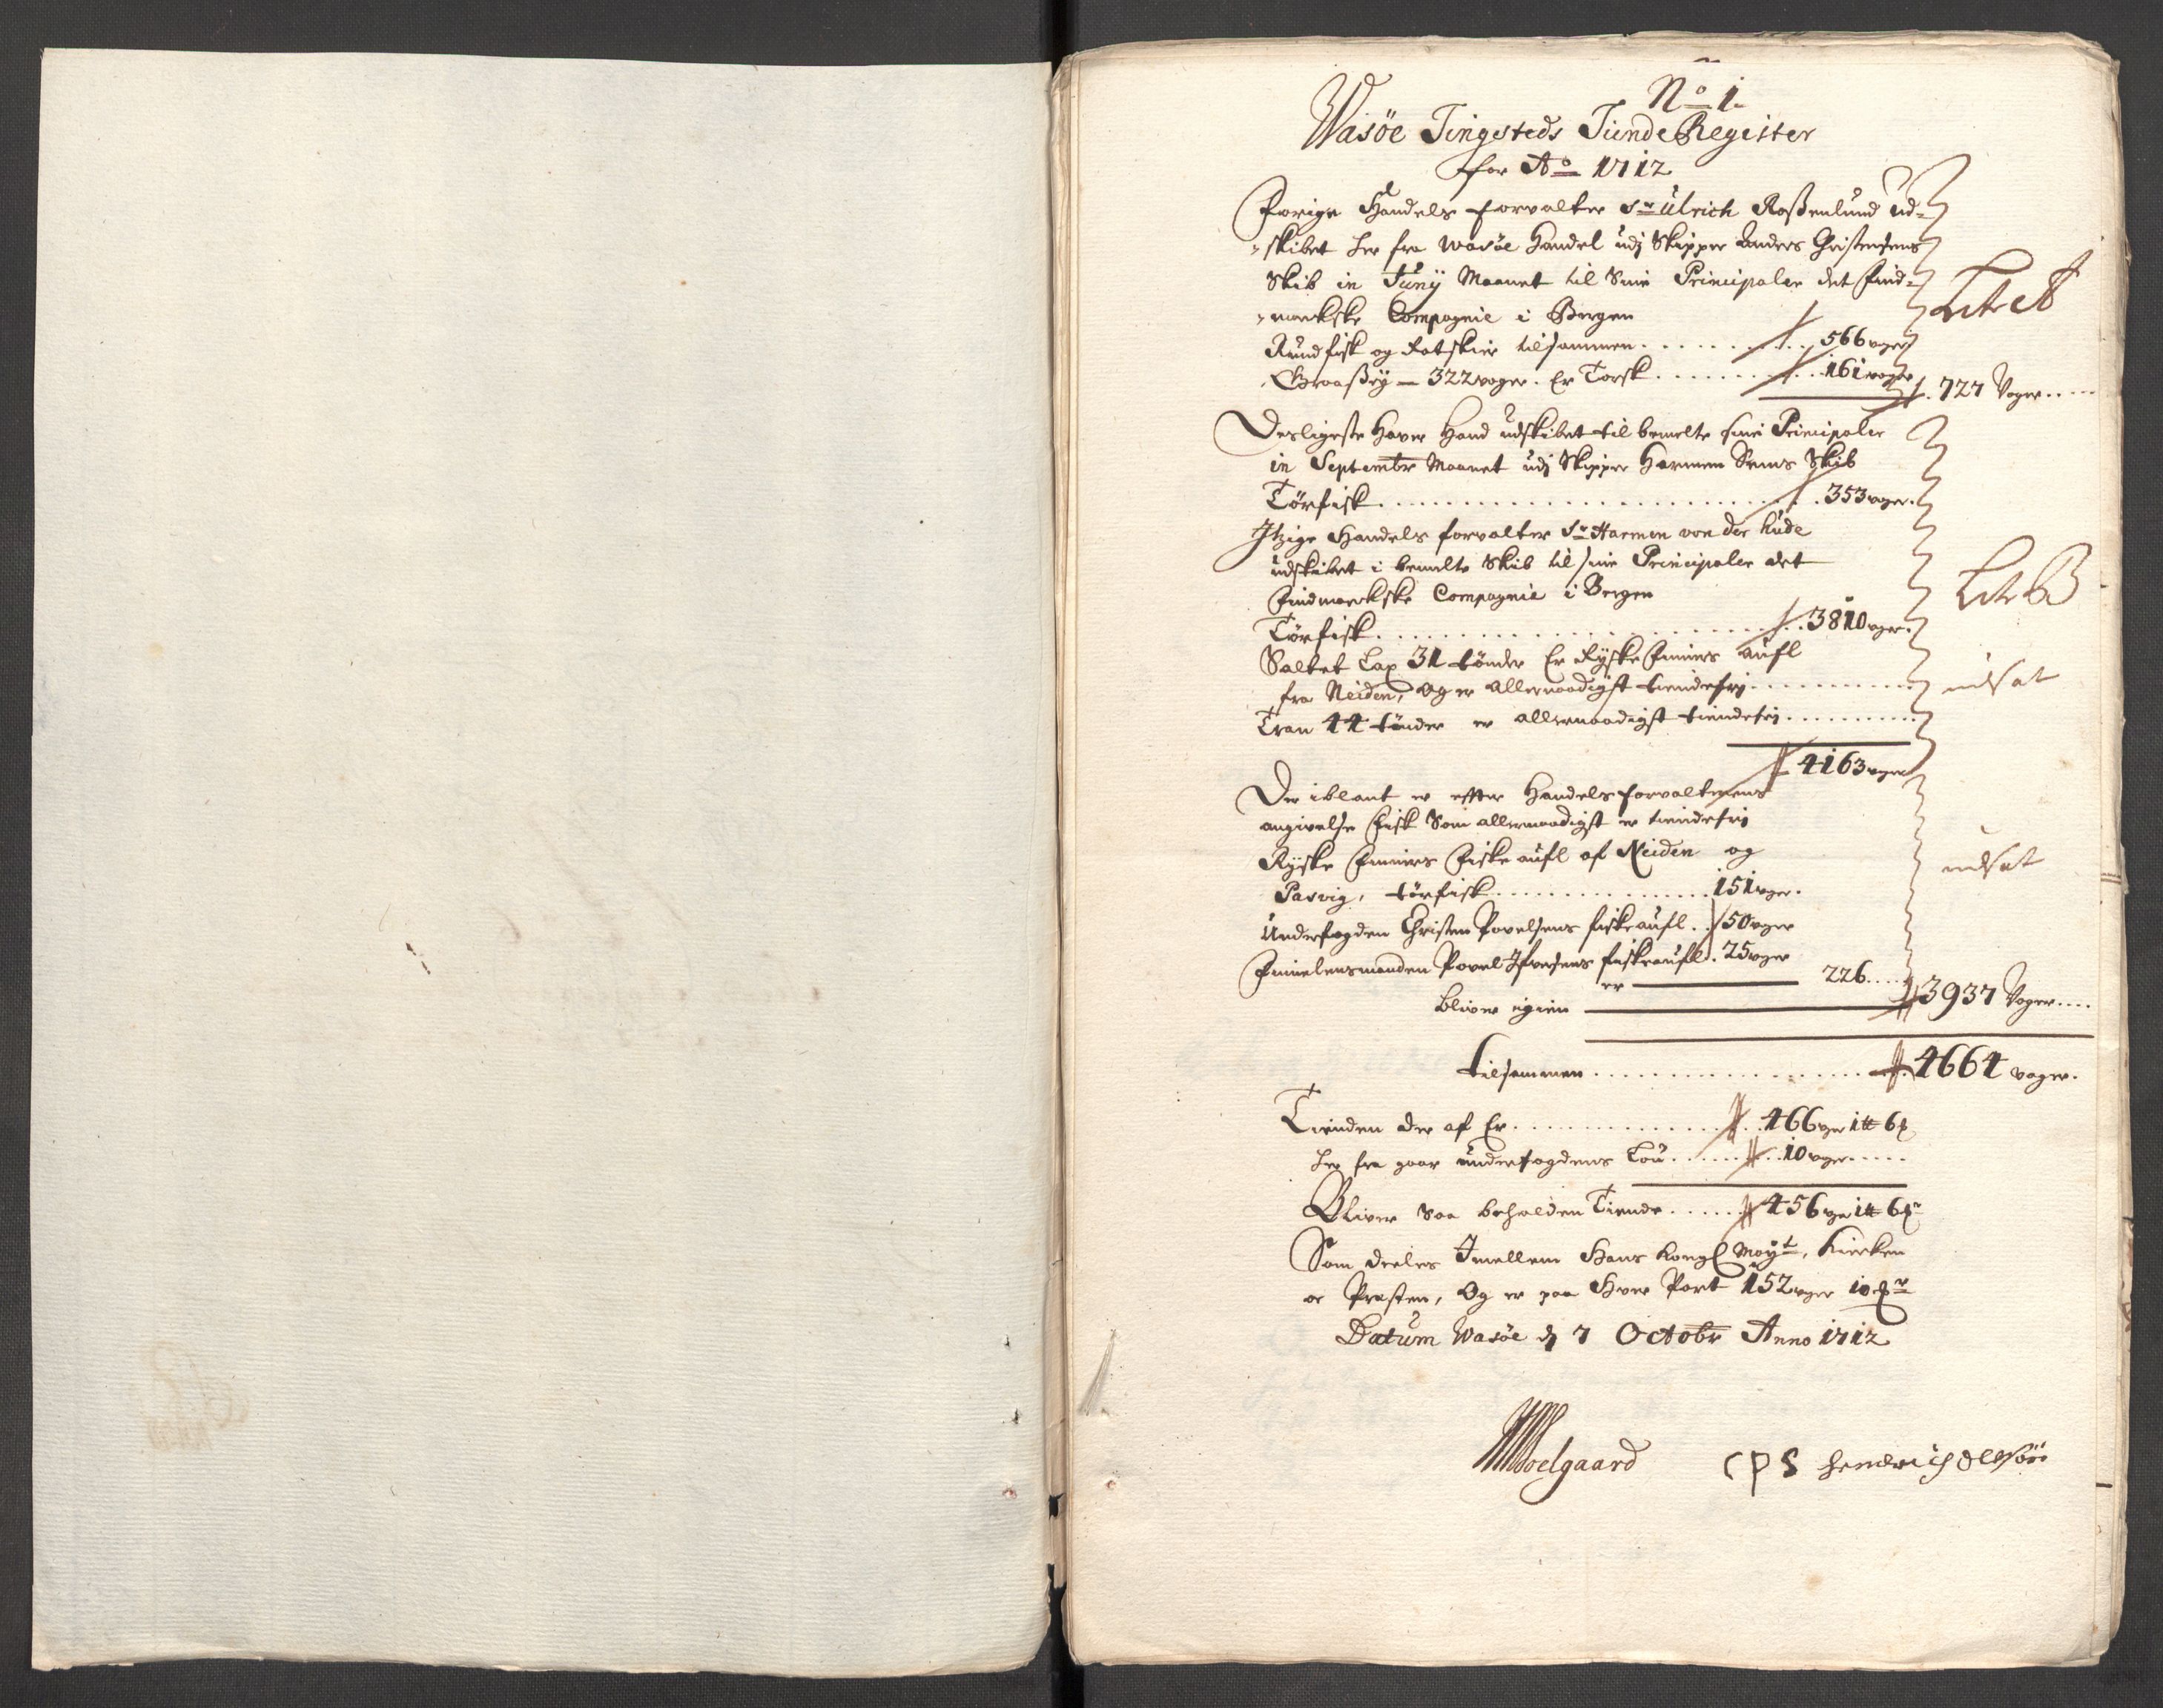 No 1.
Wasöe Tingsteds Tiende Register
for Ao 1712
Forige Handels forvalter Sr Ulrich Roßenlund ud-
skibet her fra Wasöe Handel udj Skipper Anders Christensens
Skib in Juny Maanet til Sine Principaler det Find-
marckske Compagnie i Bergen
Lit A
Rundfisk og Rotskier tilsammen . . . 566 voger
Graaßey - 322 voger. Er Torsk . . . 161 voger
727 Voger
Desligeste Haver Hand udskibet til bemelte sine Principaler
in Septembr Maanet udj Skipper Harmen Skib
Törfisk . . . 353 voger.
Itzige Handels forvalter Sr Harmen von der Hude
udskibet i bemelte Skib til sine Principaler det
Findmarckske Compagnie i Bergen
Lit B
Törfisk . . . 3810 voger.
Saltet Lax 31 tönder Er Ryske Finners aufl
fra Neiden, Og er allernaadigst tiendefrj . . . udsat
Tran 44 tönder er allernaadigst tiendefrj . . .
4163 voger
Der iblant er efter Handels forvalterens
angivelse Fisk Som allernaadigst er tiendefrj
Ryske Finners Fiske aufl af Neiden og
udsat
Pasvig, törfisk . . . 151 voger.
Underfogden Christen Povelsens fiske aufl . . 50 voger
Finnelensmanden Povel Ifversens fiske aufl . 25 voger
er 226 . . .
Bliver igien 3937 Voger . . .
Tilsammen . . . 4664 voger.
Tienden der af Er . . . 466 voger 1 6
her fra gaar underfogdens Lön . . . 10 voger . . .
Bliver Saa beholden Tiende . . . 456 voger 1 6
Som deeles Imellem Hans Kongl Mayt, Kircken
oc Præsten, Og er paa Hver Part 152 voger 10
Datum Wasöe d 7 Octobr Anno 1712
Soelgaard
CPS